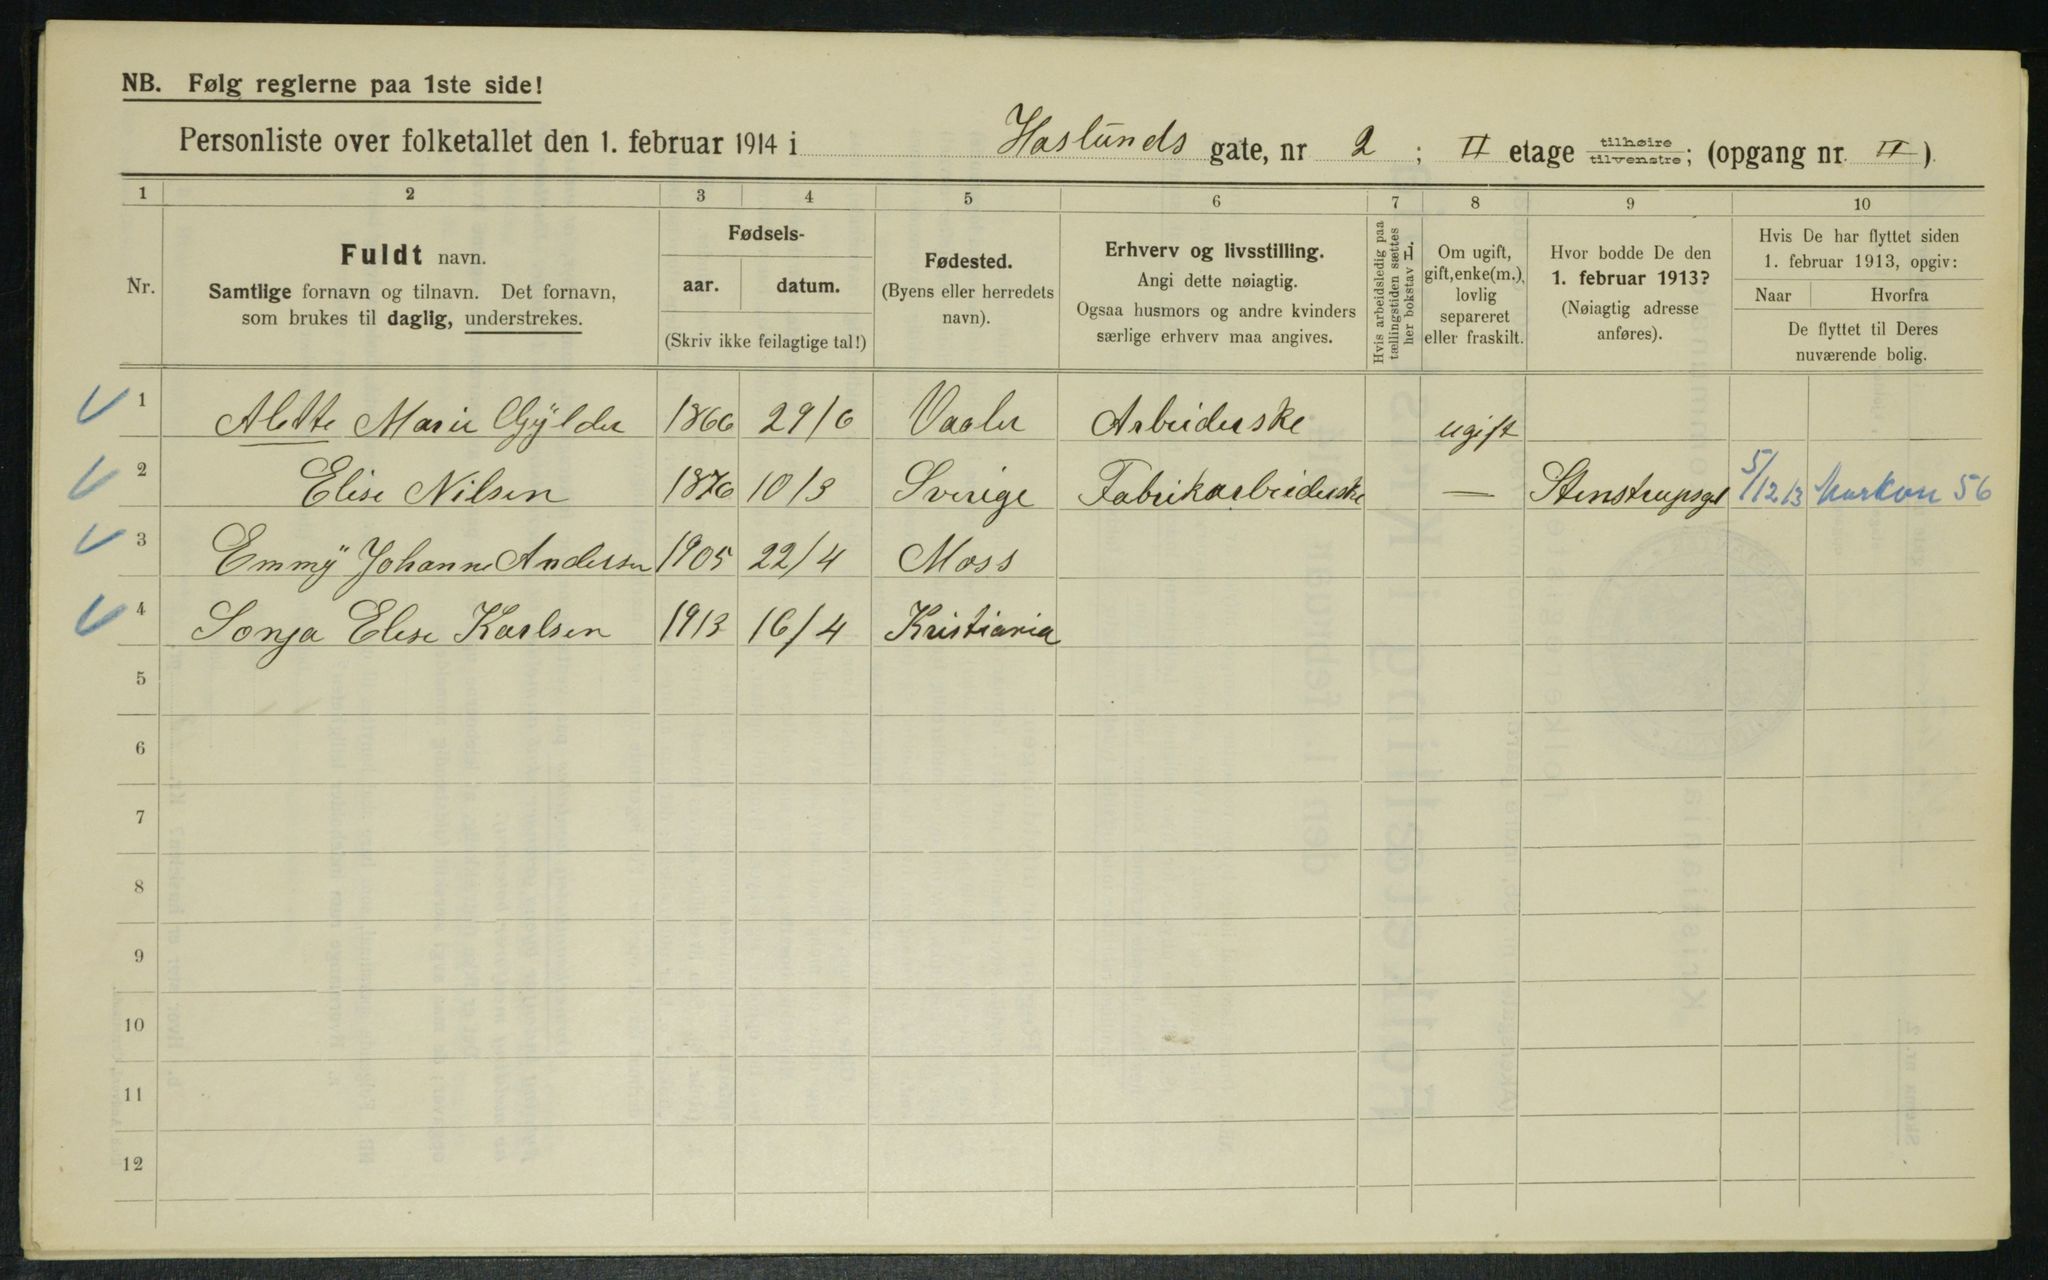 NB. Følg reglerne paa 1ste side!
Personliste over folketallet den 1. februar 1914 i Haslunds gate, nr 2 ; II etage tilhøire tilvenstre; (opgang nr. II).
1 2 3 4 5 6 7 8 9 10
Nr.
Fuldt navn.
Samtlige fornavn og tilnavn. Det fornavn,
som brukes til daglig, understrekes.
Fødsels-
aar. datum.
(Skriv ikke feilagtige tal!)
Fødested.
(Byens eller herredets
navn).
Erhverv og livsstilling.
Angi dette nøiagtig.
Ogsaa husmors og andre kvinders
særlige erhverv maa angives.
Hvis arbeidsledig paa
tællingstiden sættes
her bokstav L.
Om ugift,
gift, enke(m.),
lovlig
separeret
eller fraskilt.
Hvor bodde De den
1. februar 1913?
(Nøiagtig adresse
anføres).
Hvis De har flyttet siden
1. februar 1913, opgiv:
Naar Hvorfra
De flyttet til Deres
nuværende bolig.
1 Alette Marie Gÿlder 1866 29/6 Vaaler Arbeiderske ugift
2 Elise Nilsen 1876 10/3 Sverige Fabrikarbeiderske — Stenstrupsgt 5/12 13 Markvn 56
3 Emmÿ Johanne Andersen 1905 22/4 Moss
4 Sonja Elise Karlsen 1913 16/4 Kristiania
5
6
7
8
9
10
11
12